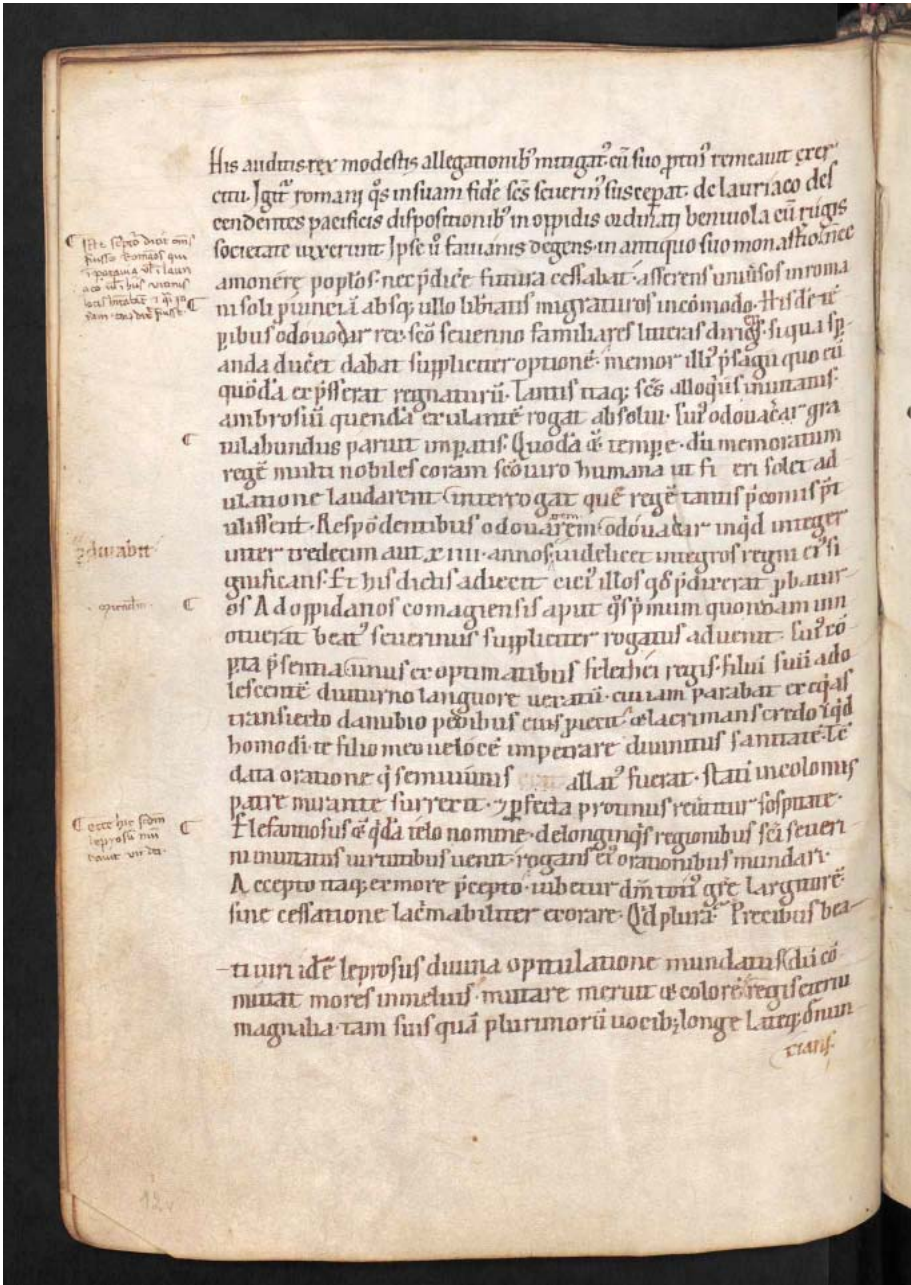 His auditis rex modestis allegationib' mitigat' cū suo ꝓtin' remeauit exer
citu. Igit' romani q̄s in suam fidē sc̄s seuerin' susceperat. de lauriaco des
cendentes pacificis dispositionib' in oppidis ordinati beniuola cū rugis
societate uixerunt. Ipse ů fauianis degens. in antiquo suo monastio. nec
amonere popłos. nec p̄dic̄e futura cessabat. asserens unių̄sos in roma
ni soli ꝓuinciā absq; ullo lib̄tatis migraturos incōmodo. Hisdē tē
ꝑibus odouodar rex. sc̄o seuerino familiares litteras dirigēs. si qua sꝑ
anda duc̄et dabat suppliciter optionē. memor illi' p̄sagii quo eū
quōdā exp̄sserat regnaturū. Tantis itaq; sc̄s alloquiis inuitatus.
ambrosiū quendā exulantē rogat absolui. Cui' odouac̄ar gra
tulabundus paruit imꝑatis. Quodā & tempe. dū memoratum
regē multi nobiles coram sc̄o uiro humana ut fi eri solet ad
ulatione laudarent. interrogat quē regē tantis p̄coniis p̄t
ulissent. Respōdentibus odouacrem. odouacar inq̇d integer
inter tredecim aut x iiii. annos. uidelicet integros regni ei' si
gnificans. Et his dictis adiecit cici' illos qđ p̄dixerat ꝓbatur
os Ad oppidanos comagiensis aput q̄s p̄mum quondam inn
otuerat beat' seuerinus suppliciter rogatus aduenit. Cui' cō
ꝑta p̄sentia unus ex optimatibus feletheı regis. filiū suū ado
lescentē diuturno languore uexatū. cui iam parabat exeq̇as
transiecto danubio pedibus eius ꝓiecit. & lacrimans credo iq̇d
homo di. te filio meo uelōcē impetrare diuinitus sanitatē. Tē
data oratione q̇ semiuiuus allat' fuerat. stati incolomis
patre mirante surrexit. ⁊ ꝑfecta protinus reu͛titur sospitate.
Elefantiosus & q̇dā telo nomine. de longinq̇s regionibus sc̄i seueri
ni inuitatus uirtutibus uenit. rogans ei' orationibus mundari.
Accepto itaq; ex more p̄cepto. iubetur dn̄m toti' grē largitorē.
sine cessatione lac̄mabiliter exorare. Qd plura. Precibus bea
ti uiri idē leprosus diuina opitulatione mundatus. dū cō
mutat mores in melius. mutare meruit & colorē. regis etern
magnalia. tam suis quā plurimorū uocib; longe lateq; dn̄un
cians.
ꝑdurabit
ecce hic sc̄dm
leprosū mū
dauit vir dei.
12v